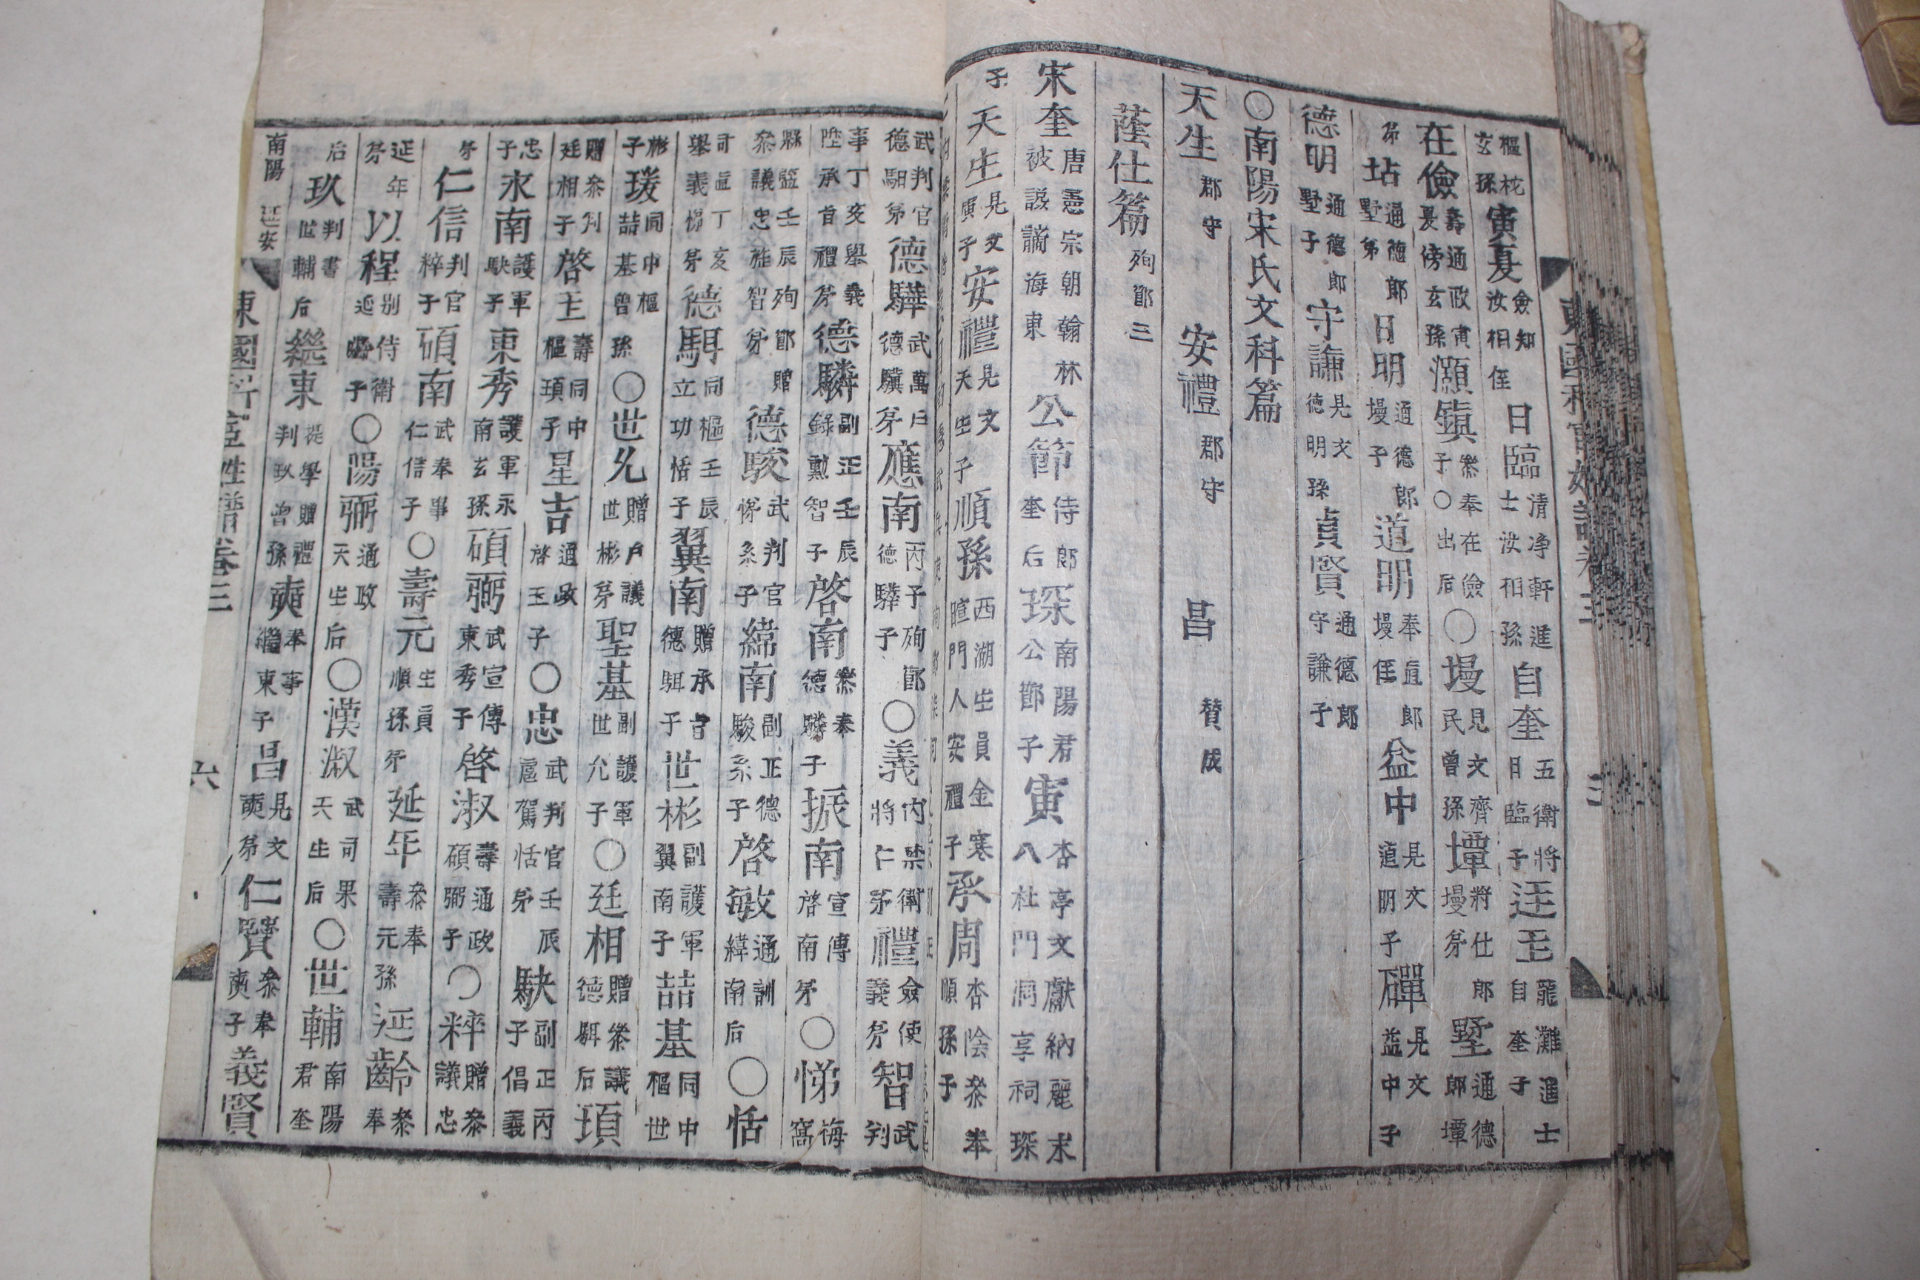 樞枕玄孫寅夏僉知汝相侄日臨清净軒進士汝相孫自奎五衛將日臨子迋王龍灘進士自奎子
在儉壽通政寅夏傍玄孫灝鎮叅奉在儉子○出后○墁見文齊民曾孫墰將仕郎墁弟墅通德郎墰
弟坫通德郎墅弟日明通德郎墁子道明奉直郎墁侄益中見文道明子磾見文益中子
德明通德郎墅子守謙見文德明孫貞賢通德郎守謙子
○南陽宋氏文科篇
天生郡守 安禮郡守 昌贊成
蔭仕篇殉節三
宋奎唐憲宗朝翰林被謫海東公節侍郎奎后琛南陽君公節子寅杏亭文獻納麗末八杜門洞享祠琛
子天生見文寅子安禮見文天生子順孫西湖生員金寒暄門人安禮子承周杏陰叅奉順孫子
武判官德駰弟德驊武萬戶德驥弟應南丙子殉節德驊子○義內禁衛將仁弟禮僉使義弟智武判
事丁亥舉義陞承旨禮弟德驎副正壬辰錄勳智子啓南叅奉德驎子振南宣傳啓南弟○悌梅窩
縣監壬辰殉節贈叅議忠旌智弟德駿武判官悌系子緯南副正德駿系子啓敏通訓緯南后○恬
司直丁亥舉義悌弟德駬同樞壬辰立功恬子翼南贈承旨德駬子世彬副護軍翼南子喆基同中樞世
彬子瑗同中樞喆基曾孫○世允贈戶議世彬弟聖基副護軍世允子○廷相贈叅議德駬后頊
贈叅判廷相子啓主壽同中樞頊子星吉通政啓玉子○忠武判官壬辰扈駕恬弟駃副正丙子倡義
忠子永南護軍駃子東秀護軍永南玄孫碩弼武宣傳東秀子啓淑壽通政碩弼子○粹贈叅議忠
弟仁信判官粹子碩南武奉事仁信子○壽元生員順孫弟延年叅奉壽元孫延齡叅奉
延年弟以程別侍衛延齡子○陽弼通政天生后○漢淑武司果天生后○世輔南陽君奎
后玖判書世輔后繼東提學贈禮判玖曾孫奭奉事繼東子昌見文奭弟仁賢叅奉奭子義賢
南陽 延安
東國科宦姓譜卷三
六